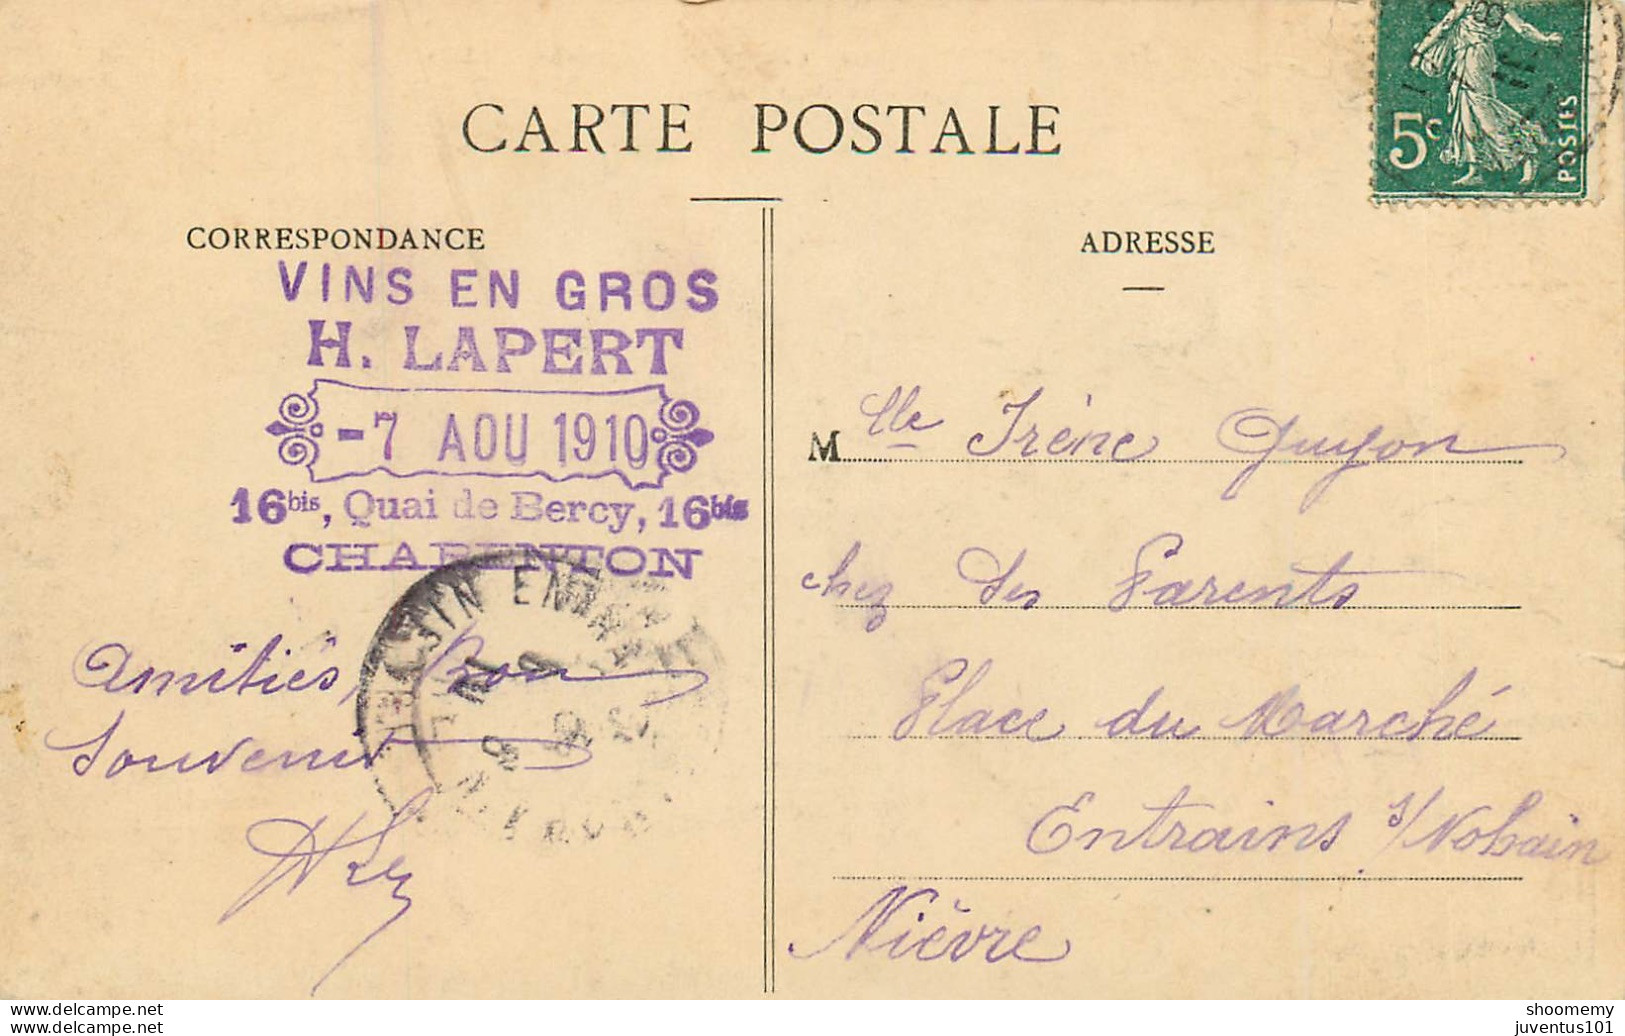 CARTE POSTALE
5c
POSTES
CORRESPONDANCE
VINS EN GROS
H. LAPERT
-7 AOU 1910
16bis, Quai de Bercy, 16bis
CHARENTON
Amitiés, Bon
Souvenir
ADRESSE
Mlle Irène Guyon
chez ses Parents
Place du Marché
Entrains s/Nohain
Nièvre
www.delcampe.net
shoomemy
juventus101